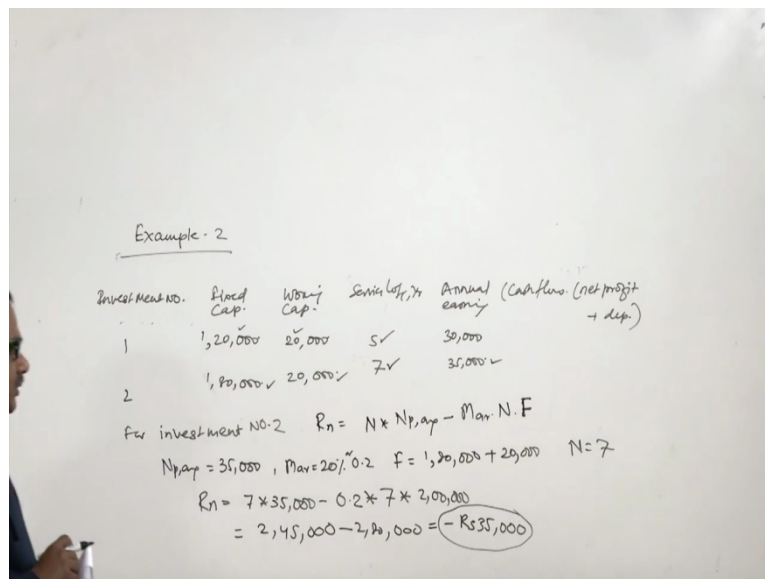 Example. 2
Investment NO. Fixed Cap. Working Cap. Service life, yr Annual earning (Cash flows. (net profit + dep.)
1 1,20,000 20,000 5✓ 30,000
2 1,80,000✓ 20,000✓ 7✓ 35,000✓
For investment NO.2 Rn = N* Np,avg - Mar. N. F
Np,avg = 35,000, Mar = 20% 0.2 F = 1,80,000 + 20,000 N = 7
Rn = 7*35,000 - 0.2*7*2,00,000
= 2,45,000 - 2,80,000 = - Rs35,000